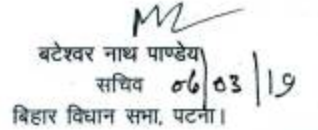 बटेश्वर नाथ पाण्डेय
सचिव 06/03/19
बिहार विधान सभा, पटना।